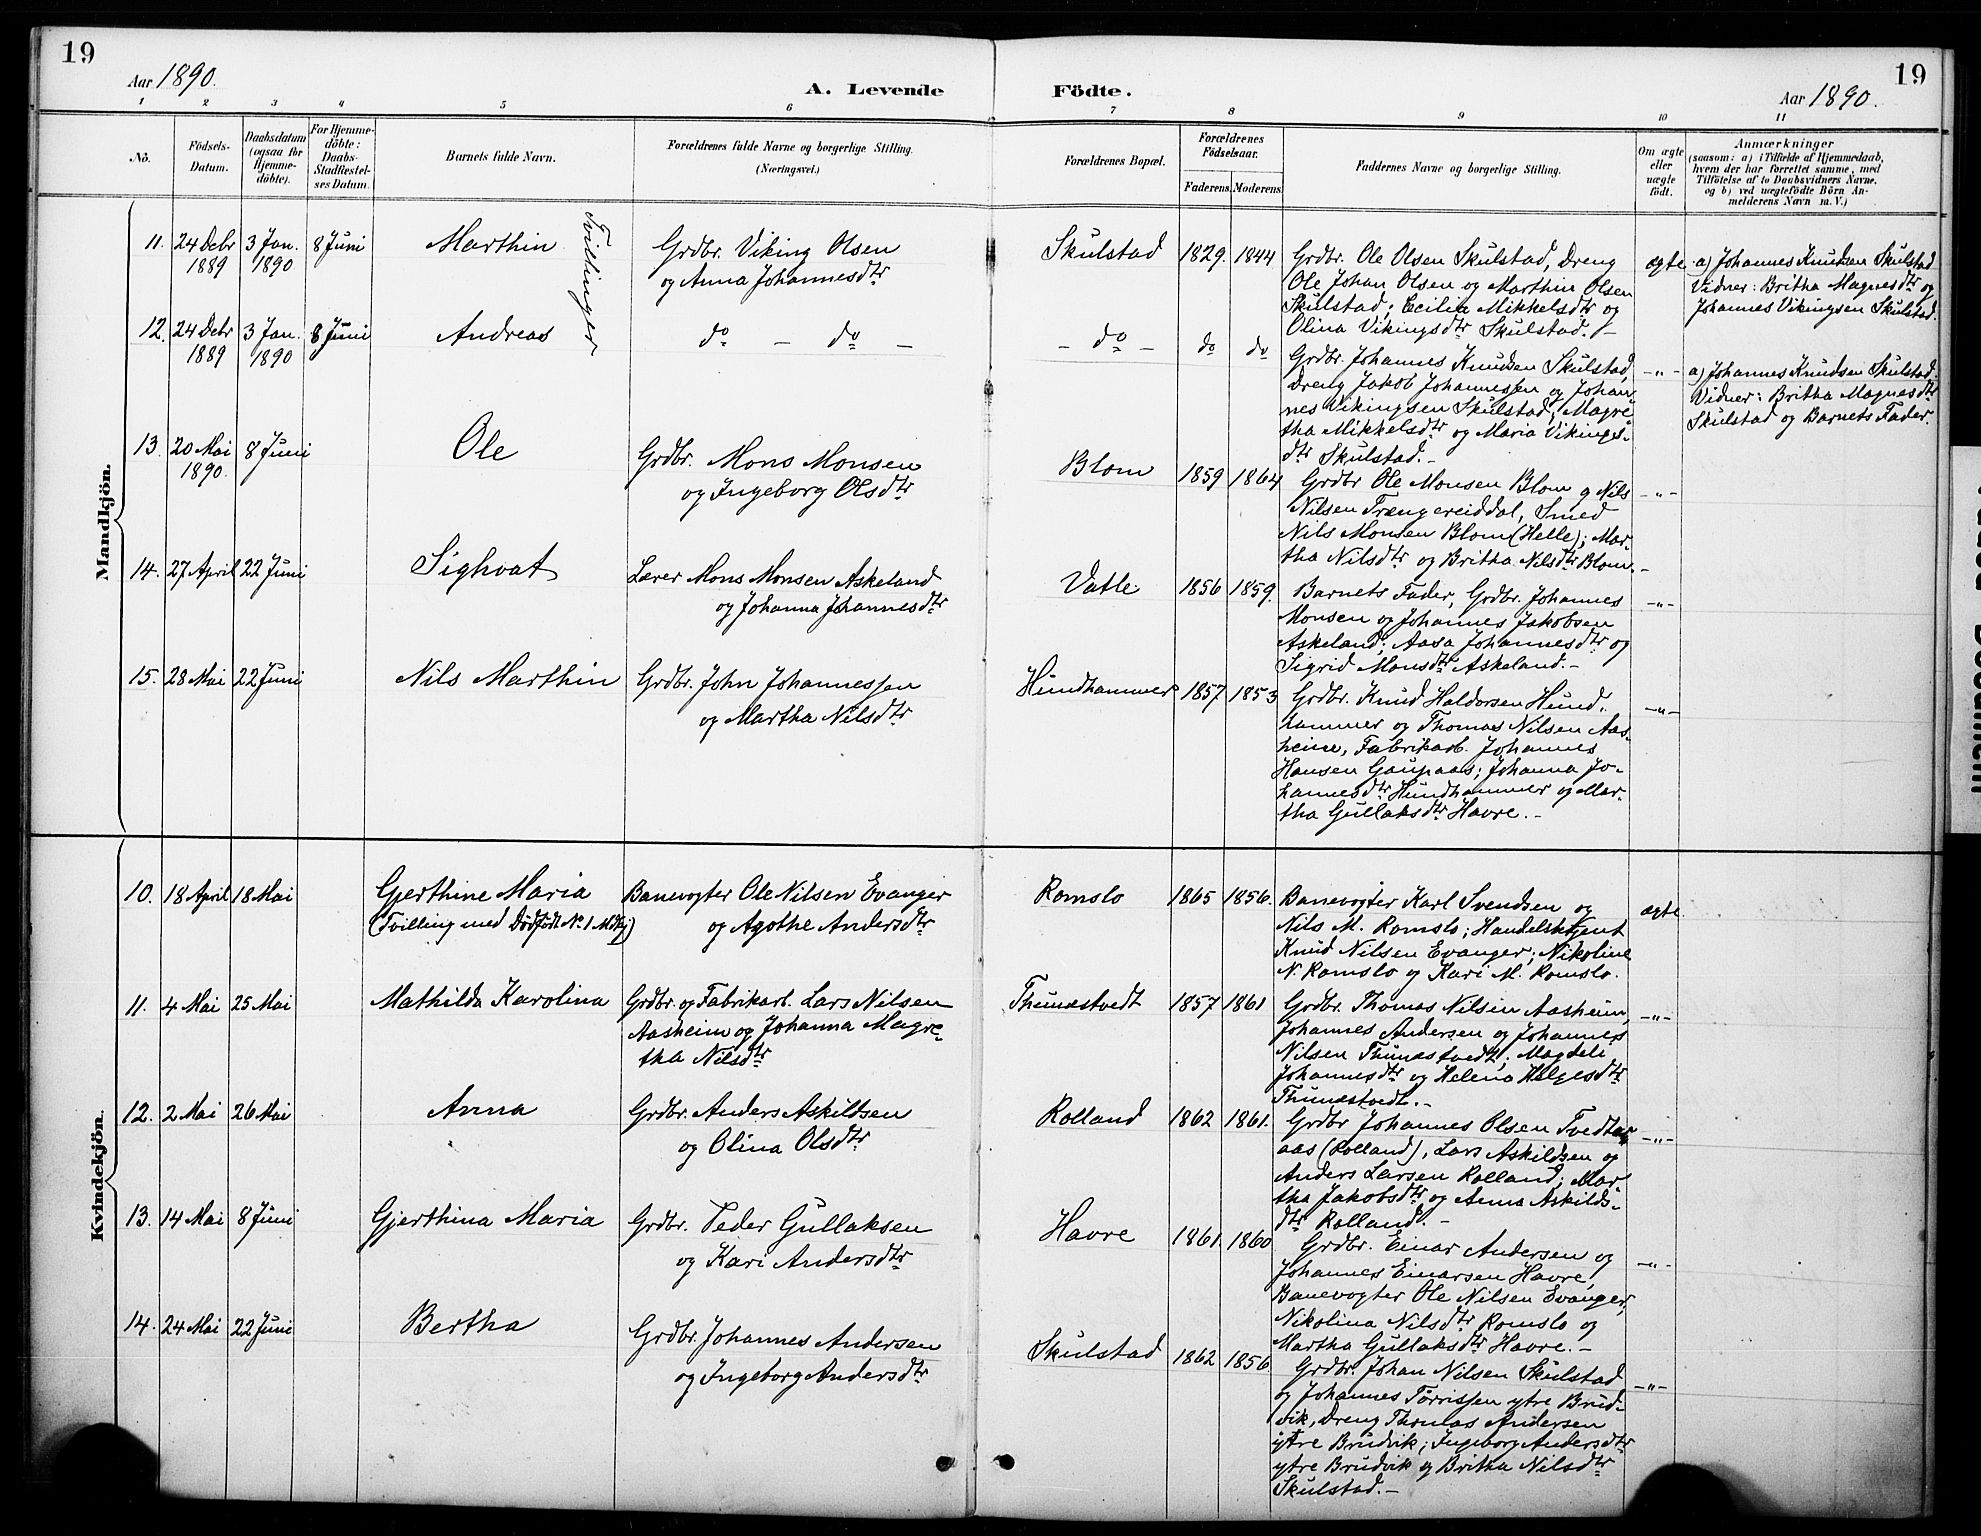 19
Aar 1890.
A. Levende
Födte.
Aar 1890.
19
1 2 3 4 5 6 7 8 9 10 11
No.
Födsels-
Datum.
Daabsdatum
(ogsaa for
Hjemme-
döbte).
For Hjemme-
döbte:
Daabs-
Stadfæstel-
ses Datum.
Barnets fulde Navn.
Forældrenes fulde Navne og borgerlige Stilling.
(Næringsvei.)
Forældrenes Bopæl.
Forældrenes
Födselsaar.
Faderens. Moderens.
Faddernes Navne og borgerlige Stilling.
Om ægte
eller
uægte
födt.
Anmærkninger
(saasom: a) i Tilfælde af Hjemmedaab,
hvem der har forrettet samme, med
Tilföielse af to Daabsvidners Navne,
og b) ved uægtefödte Börn An-
melderens Navn m. V.)
Mandkjön.
11. 24 Debr 1889
3 Jan. 1890
8 Juni
Marthin
Tvillinger
Grdbr. Viking Olsen
og Anna Johannesdtr
Skulstad 1829. 1844
Grdbr. Ole Olsen Skulstad, Dreng
Ole Johan Olsen og Marthin Olsen
Skulstad; Cecilia Mikkelsdtr og
Olina Vikingsdtr Skulstad. -
ægte
a) Johannes Knudsen Skulstad
Vidner: Britha Magnesdtr og
Johannes Vikingsen Skulstad.
12. 24 Debr 1889
3 Jan. 1890
8 Juni
Andreas
do - do -
- do - do do
Grdbr. Johannes Knudsen Skulstad,
Dreng Jakob Johannessen og Johan-
nes Vikingsen Skulstad; Magre-
tha Mikkelsdtr og Maria Vikings-
dtr Skulstad. -
-"-
a) Johannes Knudsen Skulstad.
Vidner: Britha Magnesdtr
Skulstad og Barnets Fader.
13. 20 Mai 1890.
8 Juni
Ole
Grdbr. Mons Monsen
og Ingeborg Olsdtr
Blom 1859 1864
Grdbr Ole Monsen Blom og Nils
Nilsen Trængereiddal, Smed
Nils Monsen Blom (Helle); Mar-
tha Nilsdtr og Britha Nilsdtr Blom. -
-"-
14. 27 April 22 Juni
Sighvat
Lærer Mons Monsen Askeland
og Johanna Johannesdtr
Vatle 1856 1859.
Barnets Fader, Grdbr. Johannes
Monsen og Johannes Jakobsen
Askeland; Aasa Johannesdtr og
Sigrid Monsdtr Askeland. -
-"-
15. 28 Mai 22 Juni
Nils Marthin
Grdbr. John Johannessen
og Martha Nilsdtr
Hundhammer 1857 1853
Grdbr. Knud Haldorsen Hund-
hammer og Thomas Nilsen Aas-
heim, Fabrikarb. Johannes
Hansen Gaupaas; Johanna Jo-
hannesdtr Hundhammer og Mar-
tha Gullaksdtr Havre. -
-"-
Kvindekjön.
10. 18 April 18 Mai
Gjerthine Maria
(Tvilling med Dödfödt No 1 Mdkj)
Banevogter Ole Nilsen Evanger
og Agathe Andersdtr
Romslo 1865 1856.
Banevogter Karl Svendsen og
Nils M. Romslo; Handelsbetjent
Knud Nilsen Evanger; Nikoline
N. Romslo og Kari M. Romslo.
ægte
11. 4 Mai 25 Mai
Mathilda Karolina
Grdbr. og Fabrikarb. Lars Nilsen
Aasheim og Johanna Magre-
tha Nilsdtr
Thunæstvedt 1857 1861
Grdbr. Thomas Nilsen Aasheim,
Johannes Andersen og Johannes
Nilsen Thunæstvedt; Magdeli
Johannesdtr og Helena Helgesdtr
Thunæstvedt. -
-"-
12. 2 Mai 26 Mai
Anna
Grdbr. Anders Askildsen
og Olina Olsdtr
Rolland 1862 1861.
Grdbr Johannes Olsen Tvedter-
aas (Rolland), Lars Askildsen og
Anders Larsen Rolland; Mar-
tha Jakobsdtr og Anna Askilds-
dtr Rolland. -
-"-
13. 14 Mai 8 Juni
Gjerthina Maria
Grdbr. Peder Gullaksen
og Kari Andersdtr
Havre 1861. 1860
Grdbr. Einar Andersen og
Johannes Einarsen Havre,
Banevogter Ole Nilsen Evanger,
Nikolina Nilsdtr Romslo og
Martha Gullaksdtr Havre. -
-"-
14. 24 Mai 22 Juni
Bertha
Grdbr. Johannes Andersen
og Ingeborg Andersdtr
Skulstad 1862 1856
Grdbr. Johan Nilsen Skulstad
og Johannes Torrissen ytre Brud-
vik, Dreng Thomas Andersen
ytre Brudvik; Ingeborg Andersdtr
ytre Brudvik og Britha Nilsdtr
Skulstad. -
-"-